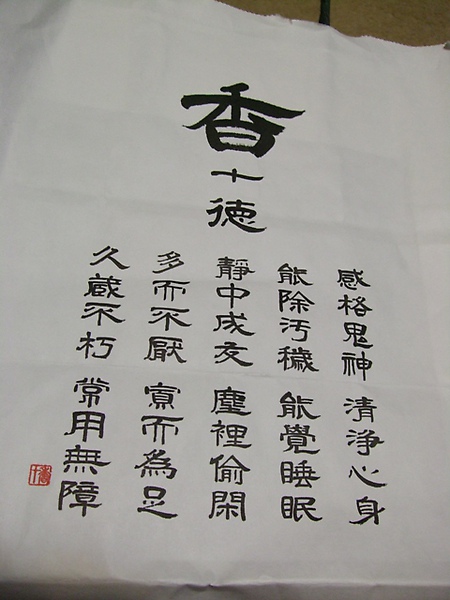 香
十
徳
感格鬼神 清淨心身
能除汚穢 能覺睡眠
靜中成友 塵裡偷閑
多而不厭 寡而為足
久蔵不朽 常用無障